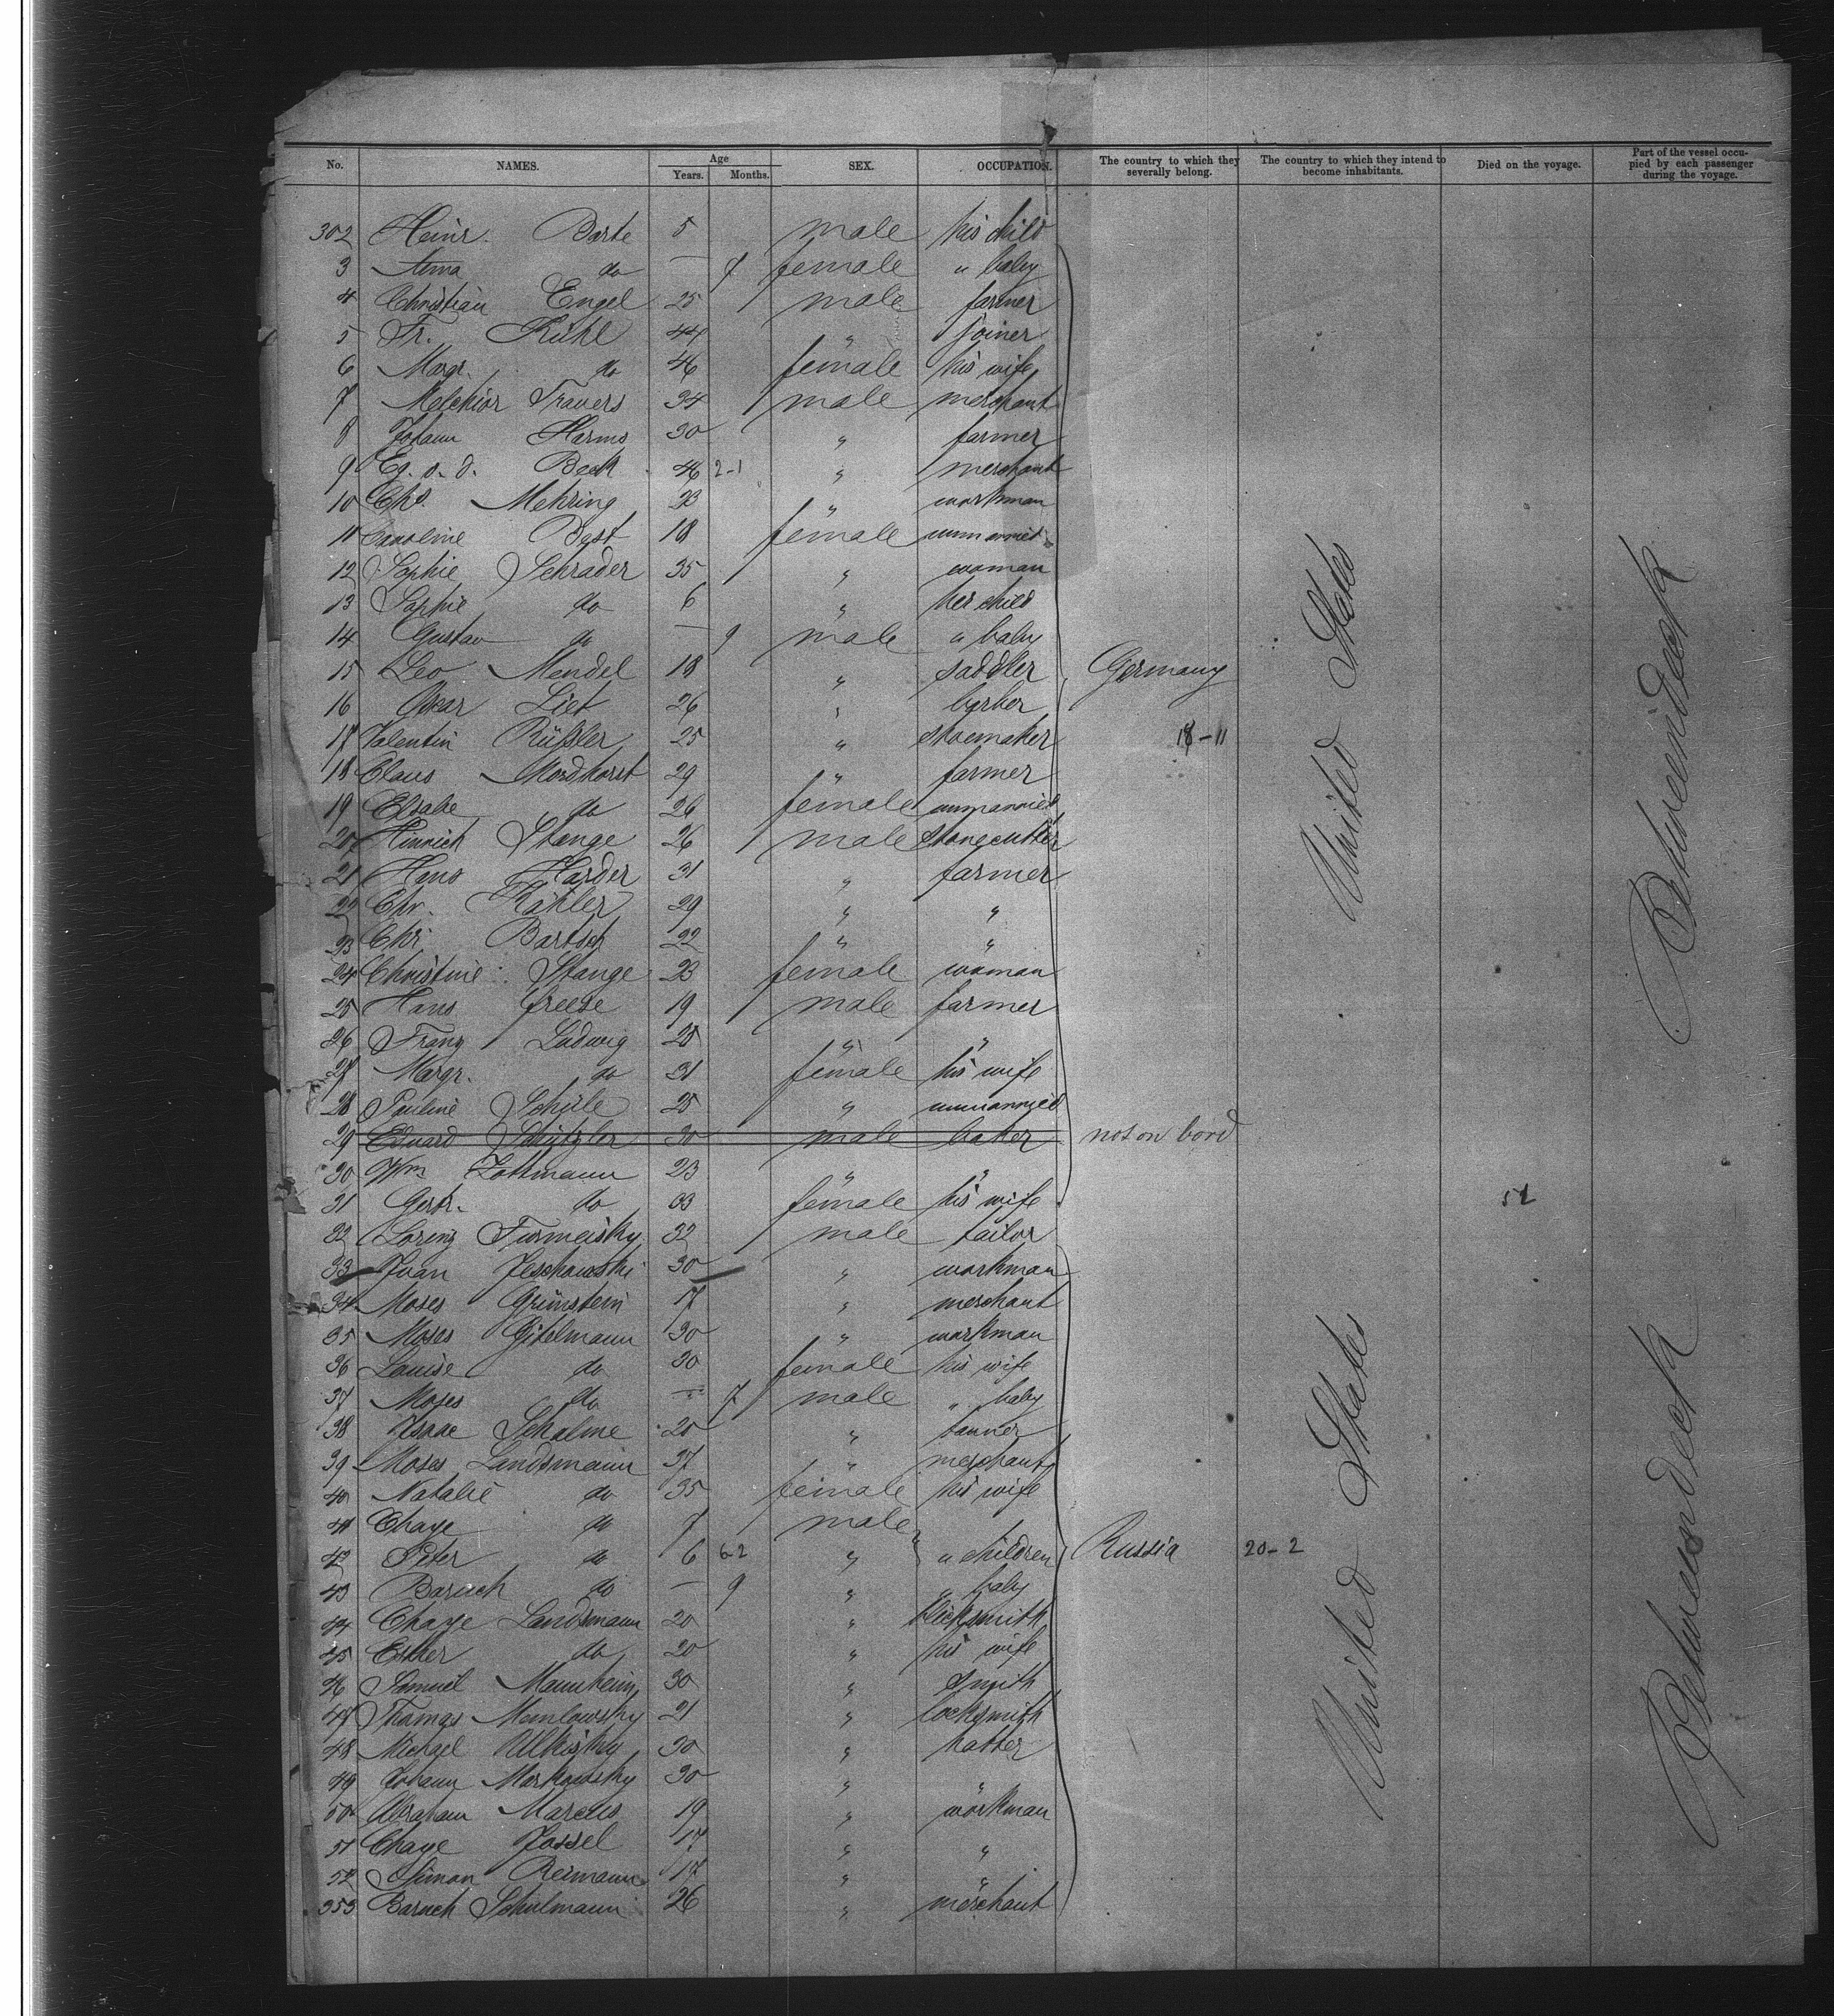 No. NAMES. Age Years. Months. SEX. OCCUPATION. The country to which they severally belong. The country to which they intend to become inhabitants. Died on the voyage. Part of the vessel occupied by each passenger during the voyage.
302 Heinr. Barte 5 male his child
3 do — 7 female " baby
4 Christian Engel 25 male farmer
5 Fr. Kühl 44 " joiner
6 Margr. do 46 female his wife
7 Melchior Travers 34 male merchant
8 Johann Harms 30 " farmer
9 Beck 46 2-1 " merchant
10 Chr. Mehring 23 " workman
11 Caroline Bast 18 female unmarried
12 Sophie Schrader 35 " woman
13 Sophie do 6 " her child
14 Gustav do — 9 male " baby
15 Leo Mendel 18 " saddler Germany
16 Oscar Liet 26 " barber
17 Valentin Rüßler 25 " shoemaker 18-11
18 Claus Mordhorst 29 " farmer
19 Elsabe do 26 female unmarried
20 Hinrich Stange 26 male stonecutter United States Betweendeck
21 Hans Harder 31 " farmer
22 Chr. Kähler 29 " "
23 Chr. Bartsch 22 " "
24 Christine Stange 23 female woman
25 Hans Freese 19 male farmer
26 Franz Ludwig 25 " "
27 Margr. do 31 female his wife
28 Pauline Schüle 25 " unmarried
29 Eduard Schützler 30 male baker not on bord
30 Wm Zottmann 23 " "
31 Gertr. do 33 female his wife 52
32 Lorenz Turmeisky 32 male tailor
33 Ivan Jeschowski 30 " workman
34 Moses Grünstein 17 " merchant
35 Moses Gitelmann 30 " workman
36 Louise do 30 female his wife
37 Moses do — 7 male " baby
38 Isaac Schalme 20 " tanner
39 Moses Landsmann 37 " merchant
40 Natalie do 35 female his wife
41 Chaye do 7 male
42 Peter do 6 6-2 " " children Russia 20-2
43 Baruch do — 9 " " baby
44 Chaye Landsmann 20 " blecksmith
45 Esther do 20 " his wife United States Betweendeck
46 Samuel Mannheim 30 " smith
47 Thomas Menlowsky 21 " locksmith
48 Michael Ulkisky 30 " hatter
49 Johann Markowsky 30 " "
50 Abraham Marcus 19 " workman
51 Chaye Jossel 17 " "
52 Simon Reimann 17 " "
353 Baruch Schulmann 26 " merchant